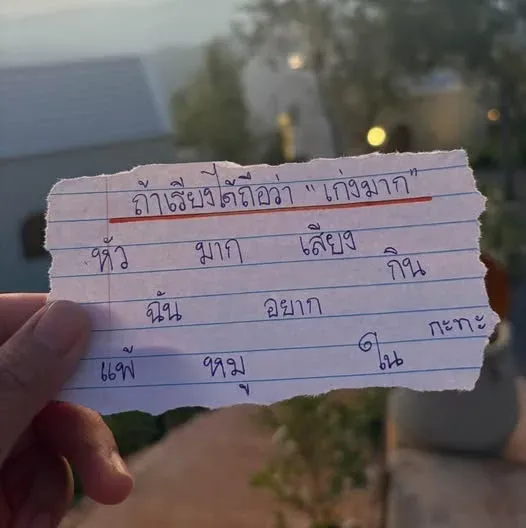 ถ้าเรียงได้ถือว่า "เก่งมาก"
หัว มาก เสียง กิน
ฉัน อยาก กะทะ
แพ้ หมู ใน